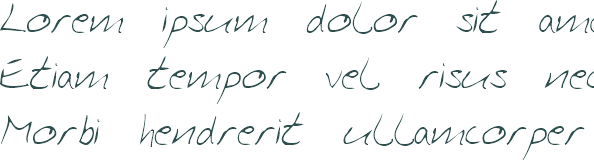 Lorem ipsum dolor sit am
Etiam tempor vel risus nec
Morbi hendrerit ullamcorper